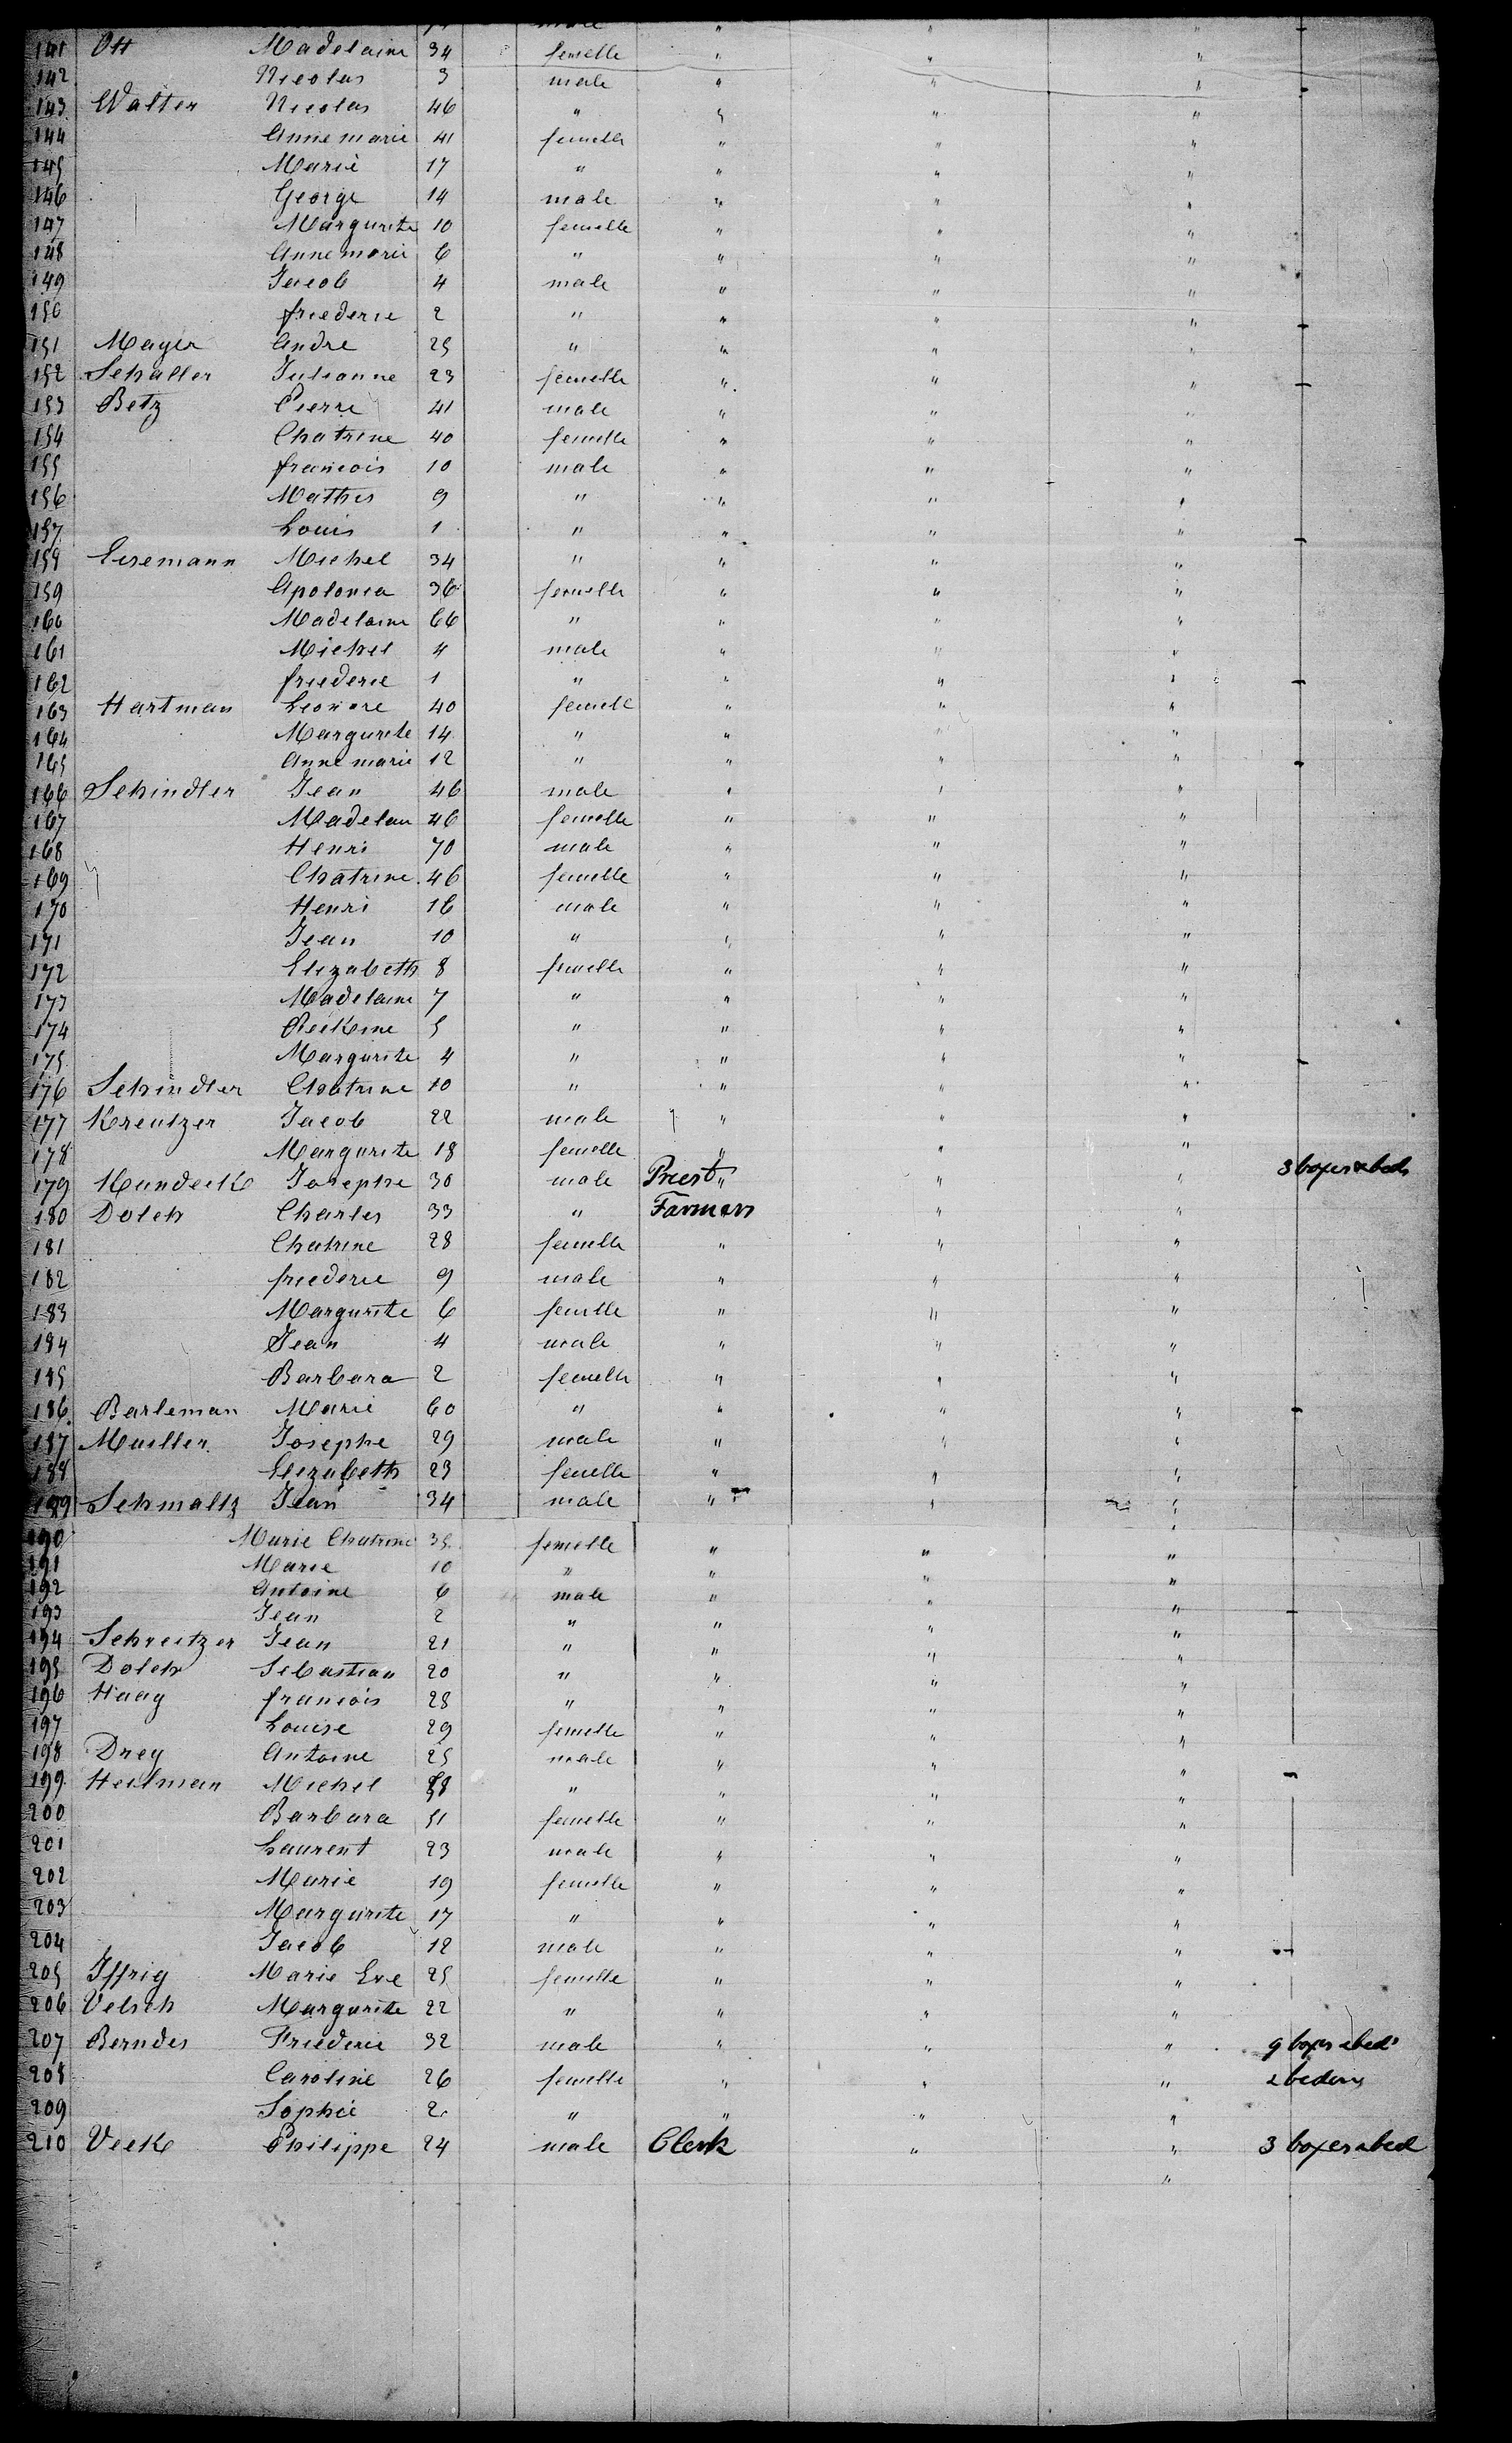 male " " "
141 Ott Madelaine 34 femelle " " "
142 Nicolas 3 male " " "
143 Walter Nicolas 46 " " " "
144 Anne marie 41 femelle " " "
145 Marie 17 " " " "
146 George 14 male " " "
147 Margurite 10 femelle " " "
148 Anne marie 6 " " " "
149 Jacob 4 male " " "
150 friederie 2 " " " "
151 Mayer Andre 25 " " " "
152 Schaller Julianne 23 femelle " " "
153 Betz Pierre 41 male " " "
154 Chatrine 40 femelle " " "
155 francois 10 male " " "
156 Mathis 9 " " " "
157 Louis 1 " " " "
158 Eisemann Michel 34 " " " "
159 Apolonia 36 femelle " " "
160 Madelaine 66 " " " "
161 Michel 4 male " " "
162 friederie 1 " " " "
163 Hartman Leonore 40 femelle " " "
164 Margurite 14 " " " "
165 Anne marie 12 " " " "
166 Schindler Jean 46 male " " "
167 Madelain 46 femelle " " "
168 Henri 70 male " " "
169 Chatrine 46 femelle " " "
170 Henri 16 male " " "
171 Jean 10 " " " "
172 Elizabeth 8 femelle " " "
173 Madelaine 7 " " " "
174 5 " " " "
175 Margurite 4 " " " "
176 Schindler Chatrine 10 " " " "
177 Kreutzer Jacob 22 male " " "
178 Margurite 18 femelle " " "
179 Mundeck Josephe 30 male Priest " " " 3 boxes & beds
180 Dolch Charles 33 " Farmers " "
181 Chatrine 28 femelle " " "
182 friederie 9 male " " "
183 Margurite 6 femelle " " "
184 Jean 4 male " " "
185 Barbara 2 femelle " " "
186 Barleman Marie 60 " " " "
187 Mueller Josephe 29 male " " "
188 Elizabeth 23 femelle " " "
189 Schmaltz Jean 34 male " " "
190 Marie Chatrine 35 femelle " " "
191 Marie 10 " " " "
192 Antoine 6 male " " "
193 Jean 2 " " " "
194 Schreitzer Jean 21 " " " "
195 Dolch Sebastian 20 " " " "
196 Haag francois 28 " " " "
197 Louise 29 femelle " " "
198 Drey Antoine 25 male " " "
199 Heilman Michel " " " "
200 Barbara 51 femelle " " "
201 Laurent 23 male " " "
202 Marie 19 femelle " " "
203 Margurite 17 " " " "
204 Jacob 12 male " " "
205 Iffrig Marie Eve 25 femelle " " "
206 Velsch Margurite 22 " " " "
207 Berndes Friederie 32 male " " " 9 boxes & beds
208 Caroline 26 femelle " " "
209 Sophie 2 " " " "
210 Veck Philippe 24 male Clerk " " 3 boxes & bed
"